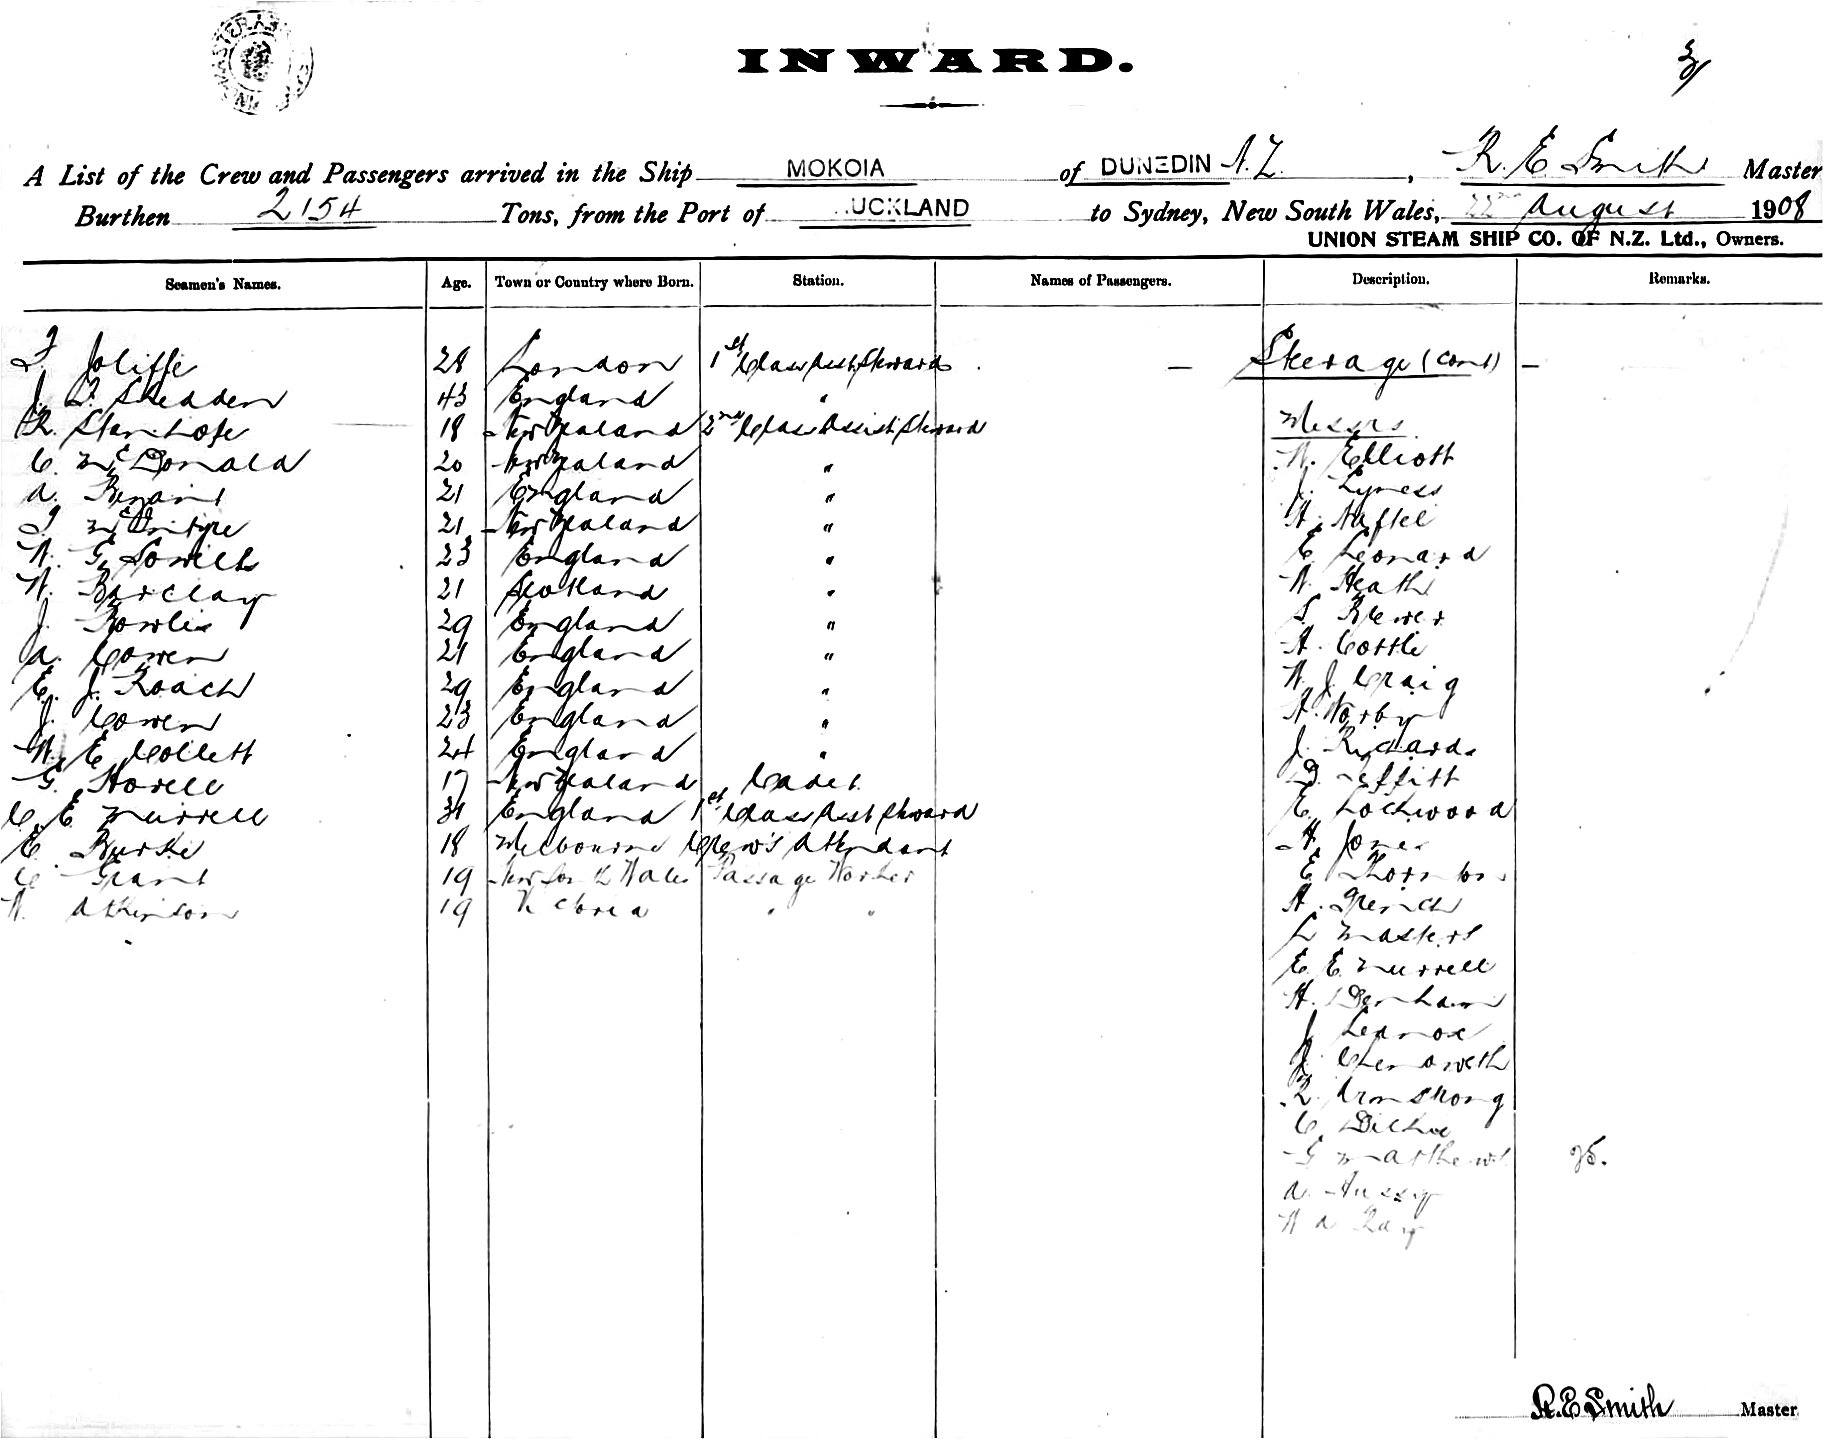 INWARD.
3/
A List of the Crew and Passengers arrived in the Ship MOKOIA of DUNEDIN N.Z., R. E Smith Master
Burthen 2154 Tons, from the Port of UCKLAND to Sydney, New South Wales, 22nd August 1908
UNION STEAM SHIP CO. OF N.Z. Ltd., Owners.
Seamen's Names. Age. Town or Country where Born. Station. Names of Passengers. Description. Remarks.
J. Joliffe 28 London 1st Class Asst Steward — Steerage (cont) —
J. F. Shedden 43 England "
R. Stanhope 18 New Zealand 2nd Class Assist Steward Messrs
C. McDonald 20 New Zealand " W. Elliott
A. Bryant 21 England " J. Lyness
21 New Zealand " H. Naftel
W. G. 23 England " E Leonard
W. Barclay 21 Scotland " W. Heath
J. Bowlis 29 England " S. Brewer
A. Cowen 21 England " A. Cottle
E. J. Roach 29 England " W. J. Craig
J. Cowen 23 England " A. Norby
W. E Collett 24 England " J. Richards
G. Howell 17 New Zealand Cadet
C. E. Murrell 31 England 1st Class Asst Steward E Lockwood
E. Burke 18 Melbourne Crew's Attendant H. Jones
C. Grant 19 New South Wales Passage Worker E Thornton
W. Atkinson 19 Victoria " " A. French
L Masters
E E. Murrell
H. Denham
J Leanox
J. Chenoweth
R. Armstrong
C. Dickie
G Matthews 25.
A. Hussey
W A Ray
R.E Smith Master